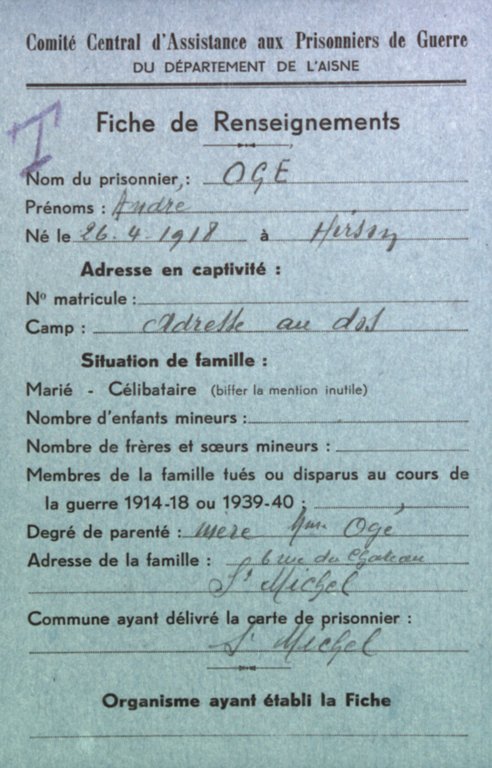 Comité Central d'Assistance aux Prisonniers de Guerre
DU DÉPARTEMENT DE L'AISNE
I
Fiche de Renseignements
Nom du prisonnier : OGE
Prénoms : André
Né le 26.4.1918 à Hirson
Adresse en captivité :
Nº matricule :
Camp : Adresse au dos
Situation de famille :
Marié - Célibataire (biffer la mention inutile)
Nombre d'enfants mineurs :
Nombre de frères et sœurs mineurs :
Membres de la famille tués ou disparus au cours de
la guerre 1914-18 ou 1939-40 :
Degré de parenté : mere Mme Ogé
Adresse de la famille : 6 rue du Chateau
St Michel
Commune ayant délivré la carte de prisonnier :
St Michel
Organisme ayant établi la Fiche